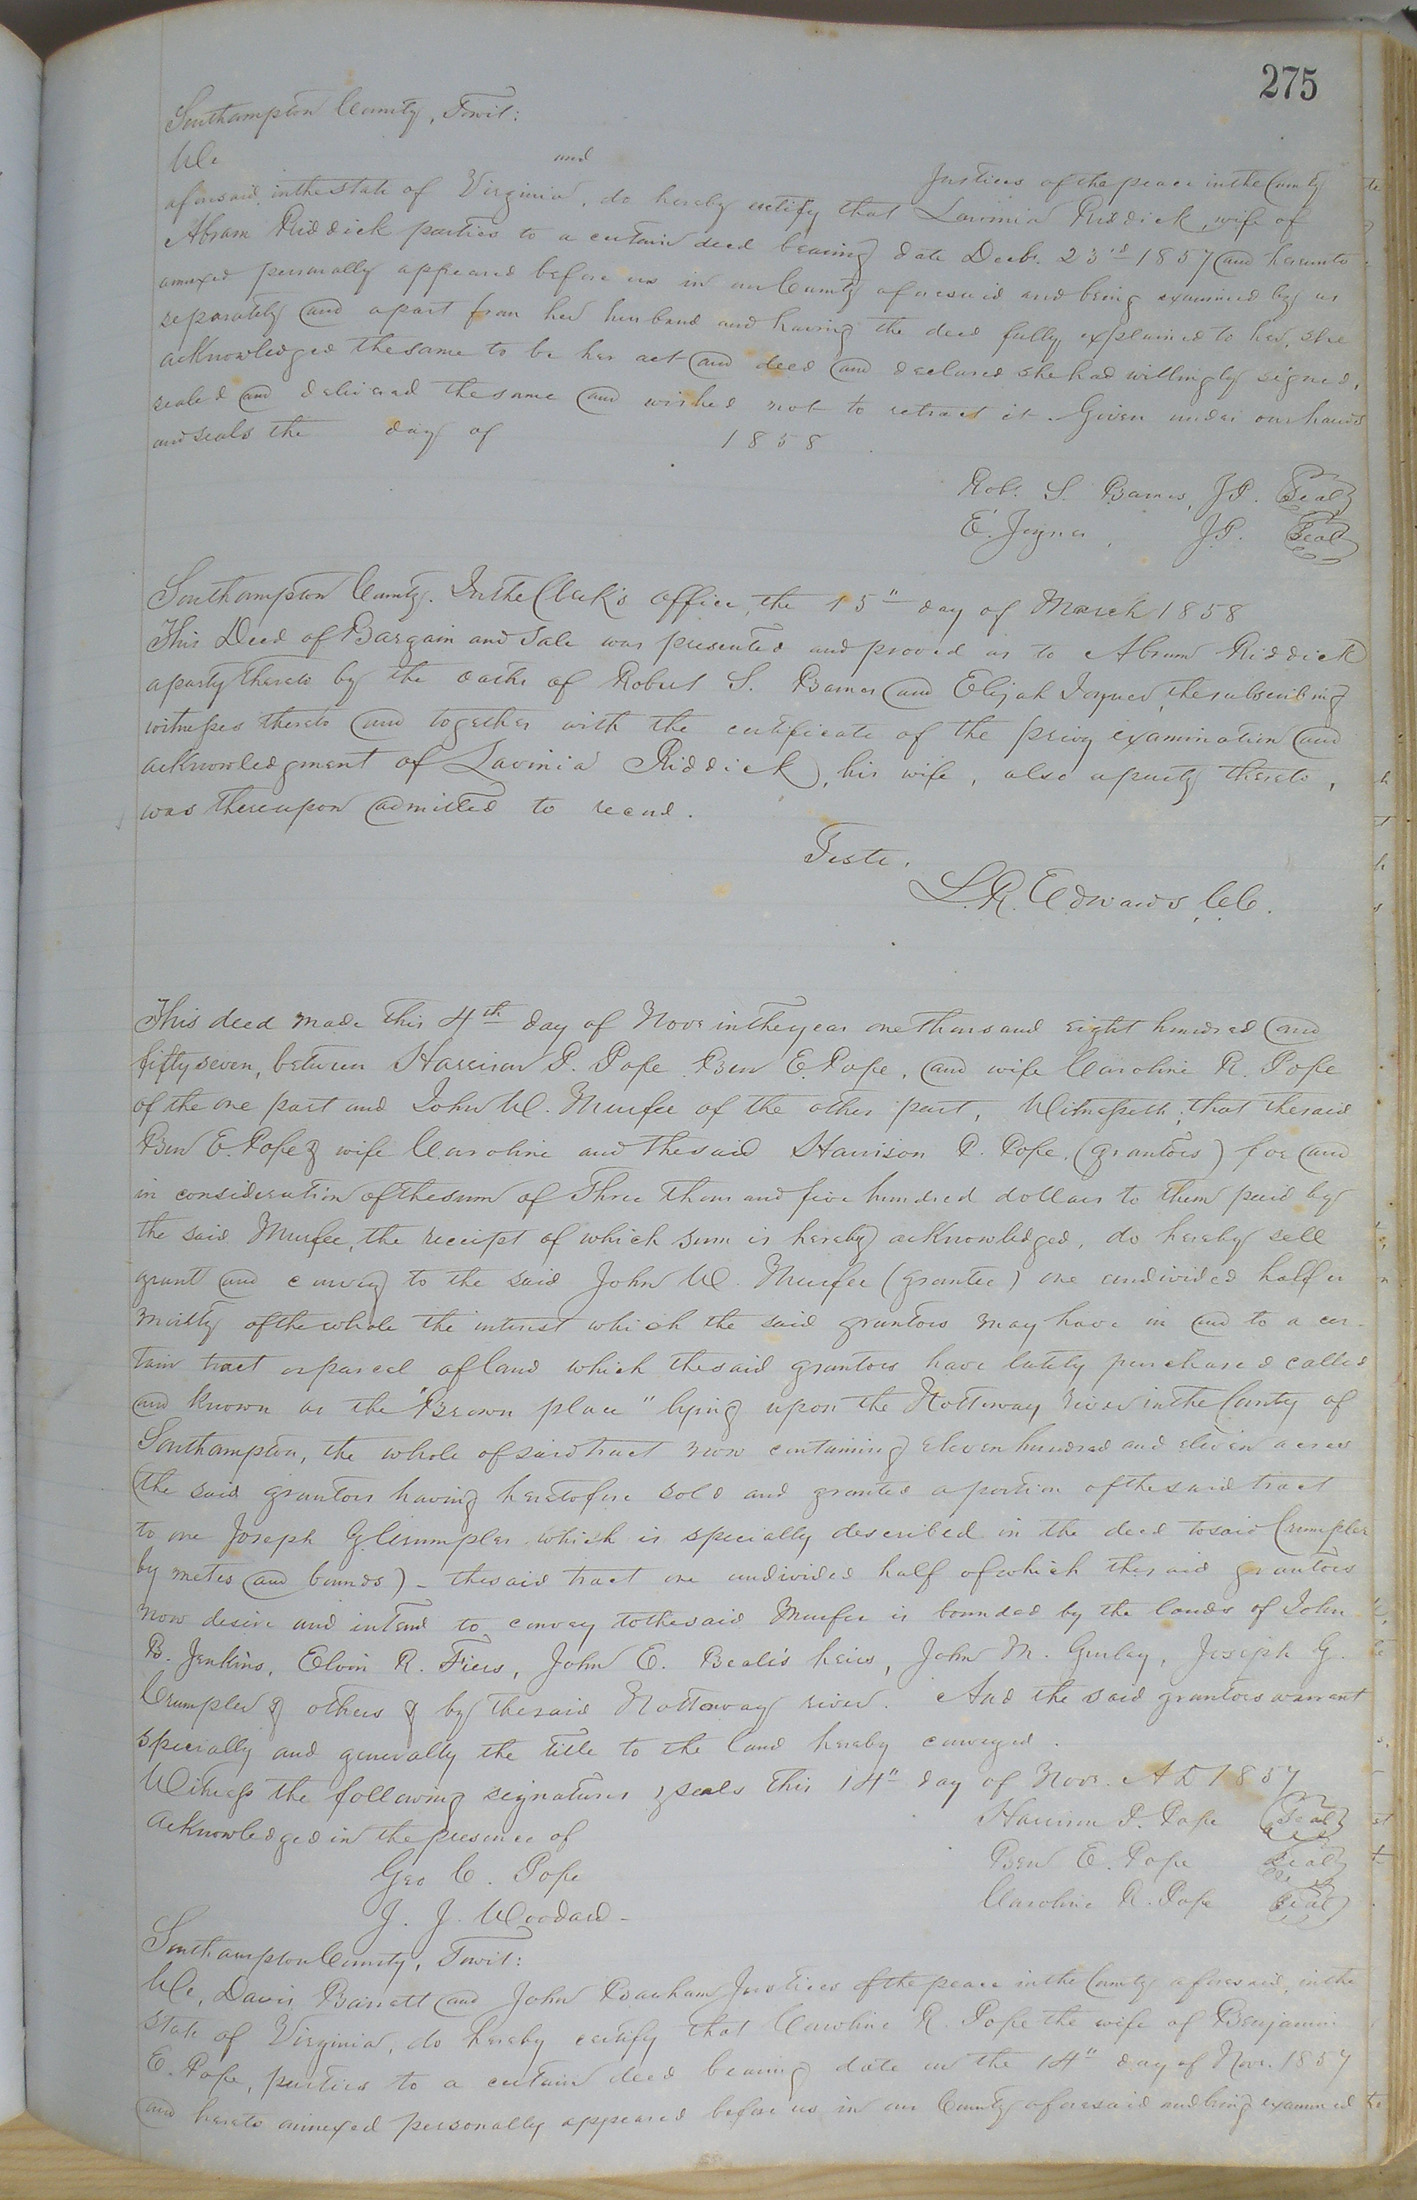 275
Southampton County, Towit:
We and Justices of the peace in the County
aforesaid, in the State of Virginia, do hereby certify that Lavinia Riddick, wife of
Abram Riddick parties to a certain deed bearing date Decbr. 23rd 1857 and hereunto
annexed personally appeared before us in our County aforesaid and being examined by us
separately and apart from her husband and having the deed fully explained to her, she
acknowledged the same to be her act and deed and declared she had willingly signed,
sealed and delivered the same and wished not to retract it. Given under our hands
and seals the day of 1858
Robt. S. Barnes, J.P. Seal
E. Joyner, J.P. Seal
Southampton County. In the Clerk's office, the 15" day of March 1858
This Deed of Bargain and Sale was presented and proved as to Abram Riddick
a party thereto by the oaths of Robert S. Barnes and Elijah Joyner, the subscribing
witnesses thereto and together with the certificate of the privy examination and
acknowledgment of Lavinia Riddick, his wife, also a party thereto,
was thereupon admitted to record.
Teste,
L. R. Edwards, C.C.
This deed made this 4th day of Novr in the year one thousand eight hundred and
fifty seven, between Harrison P. Pope Ben E. Pope, and wife Caroline R. Pope
of the one part and John W. Murfee of the other part, Witnesseth, that the said
Ben E. Pope & wife Caroline and the said Harrison P. Pope, (grantors) for and
in consideration of the sum of Three thousand five hundred dollars to them paid by
the said Murfee, the receipt of which sum is hereby acknowledged, do hereby sell
grant and convey to the said John W. Murfee (grantee) one undivided half or
moitty of the whole the interest which the said grantors may have in and to a cer-
tain tract or parcel of land which the said grantors have lately purchased called
and known as the "Brown place" lying upon the Nottoway river in the County of
Southampton, the whole of said tract now containing eleven hundred and eleven acres
(the said grantors having heretofore sold and granted a portion of the said tract
to one Joseph G. Crumpler which is specially described in the deed to said Crumpler
by metes and bounds) - the said tract one undivided half of which the said grantors
now desire and intend to convey to the said Murfee is bounded by the lands of John
B. Jenkins, Elvin R. Fiers, John E. Beale's heirs, John M. Gurley, Joseph G.
Crumpler & others & by the said Nottoway river. And the said grantors warrant
specially and generally the title to the land hereby conveyed.
Witness the following signatures & seals this 14" day of Novr. A D 1857
Acknowledged in the presence of Harrison P. Pope Seal
Geo C. Pope Ben E. Pope Seal
J. J. Woodard - Caroline R. Pope Seal
Southampton County, Towit:
We, Davis Barrett and John Barham Justices of the peace in the County aforesaid, in the
State of Virginia, do hereby certify that Caroline R. Pope the wife of Benjamin
E. Pope, parties to a certain deed bearing date on the 14" day of Novr. 1857
and hereto annexed personally appeared before us in our County aforesaid and being examined